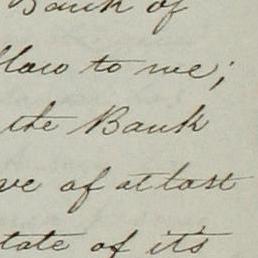 Bank of
llow to me;
the Bank
ve of at last
tate of it's